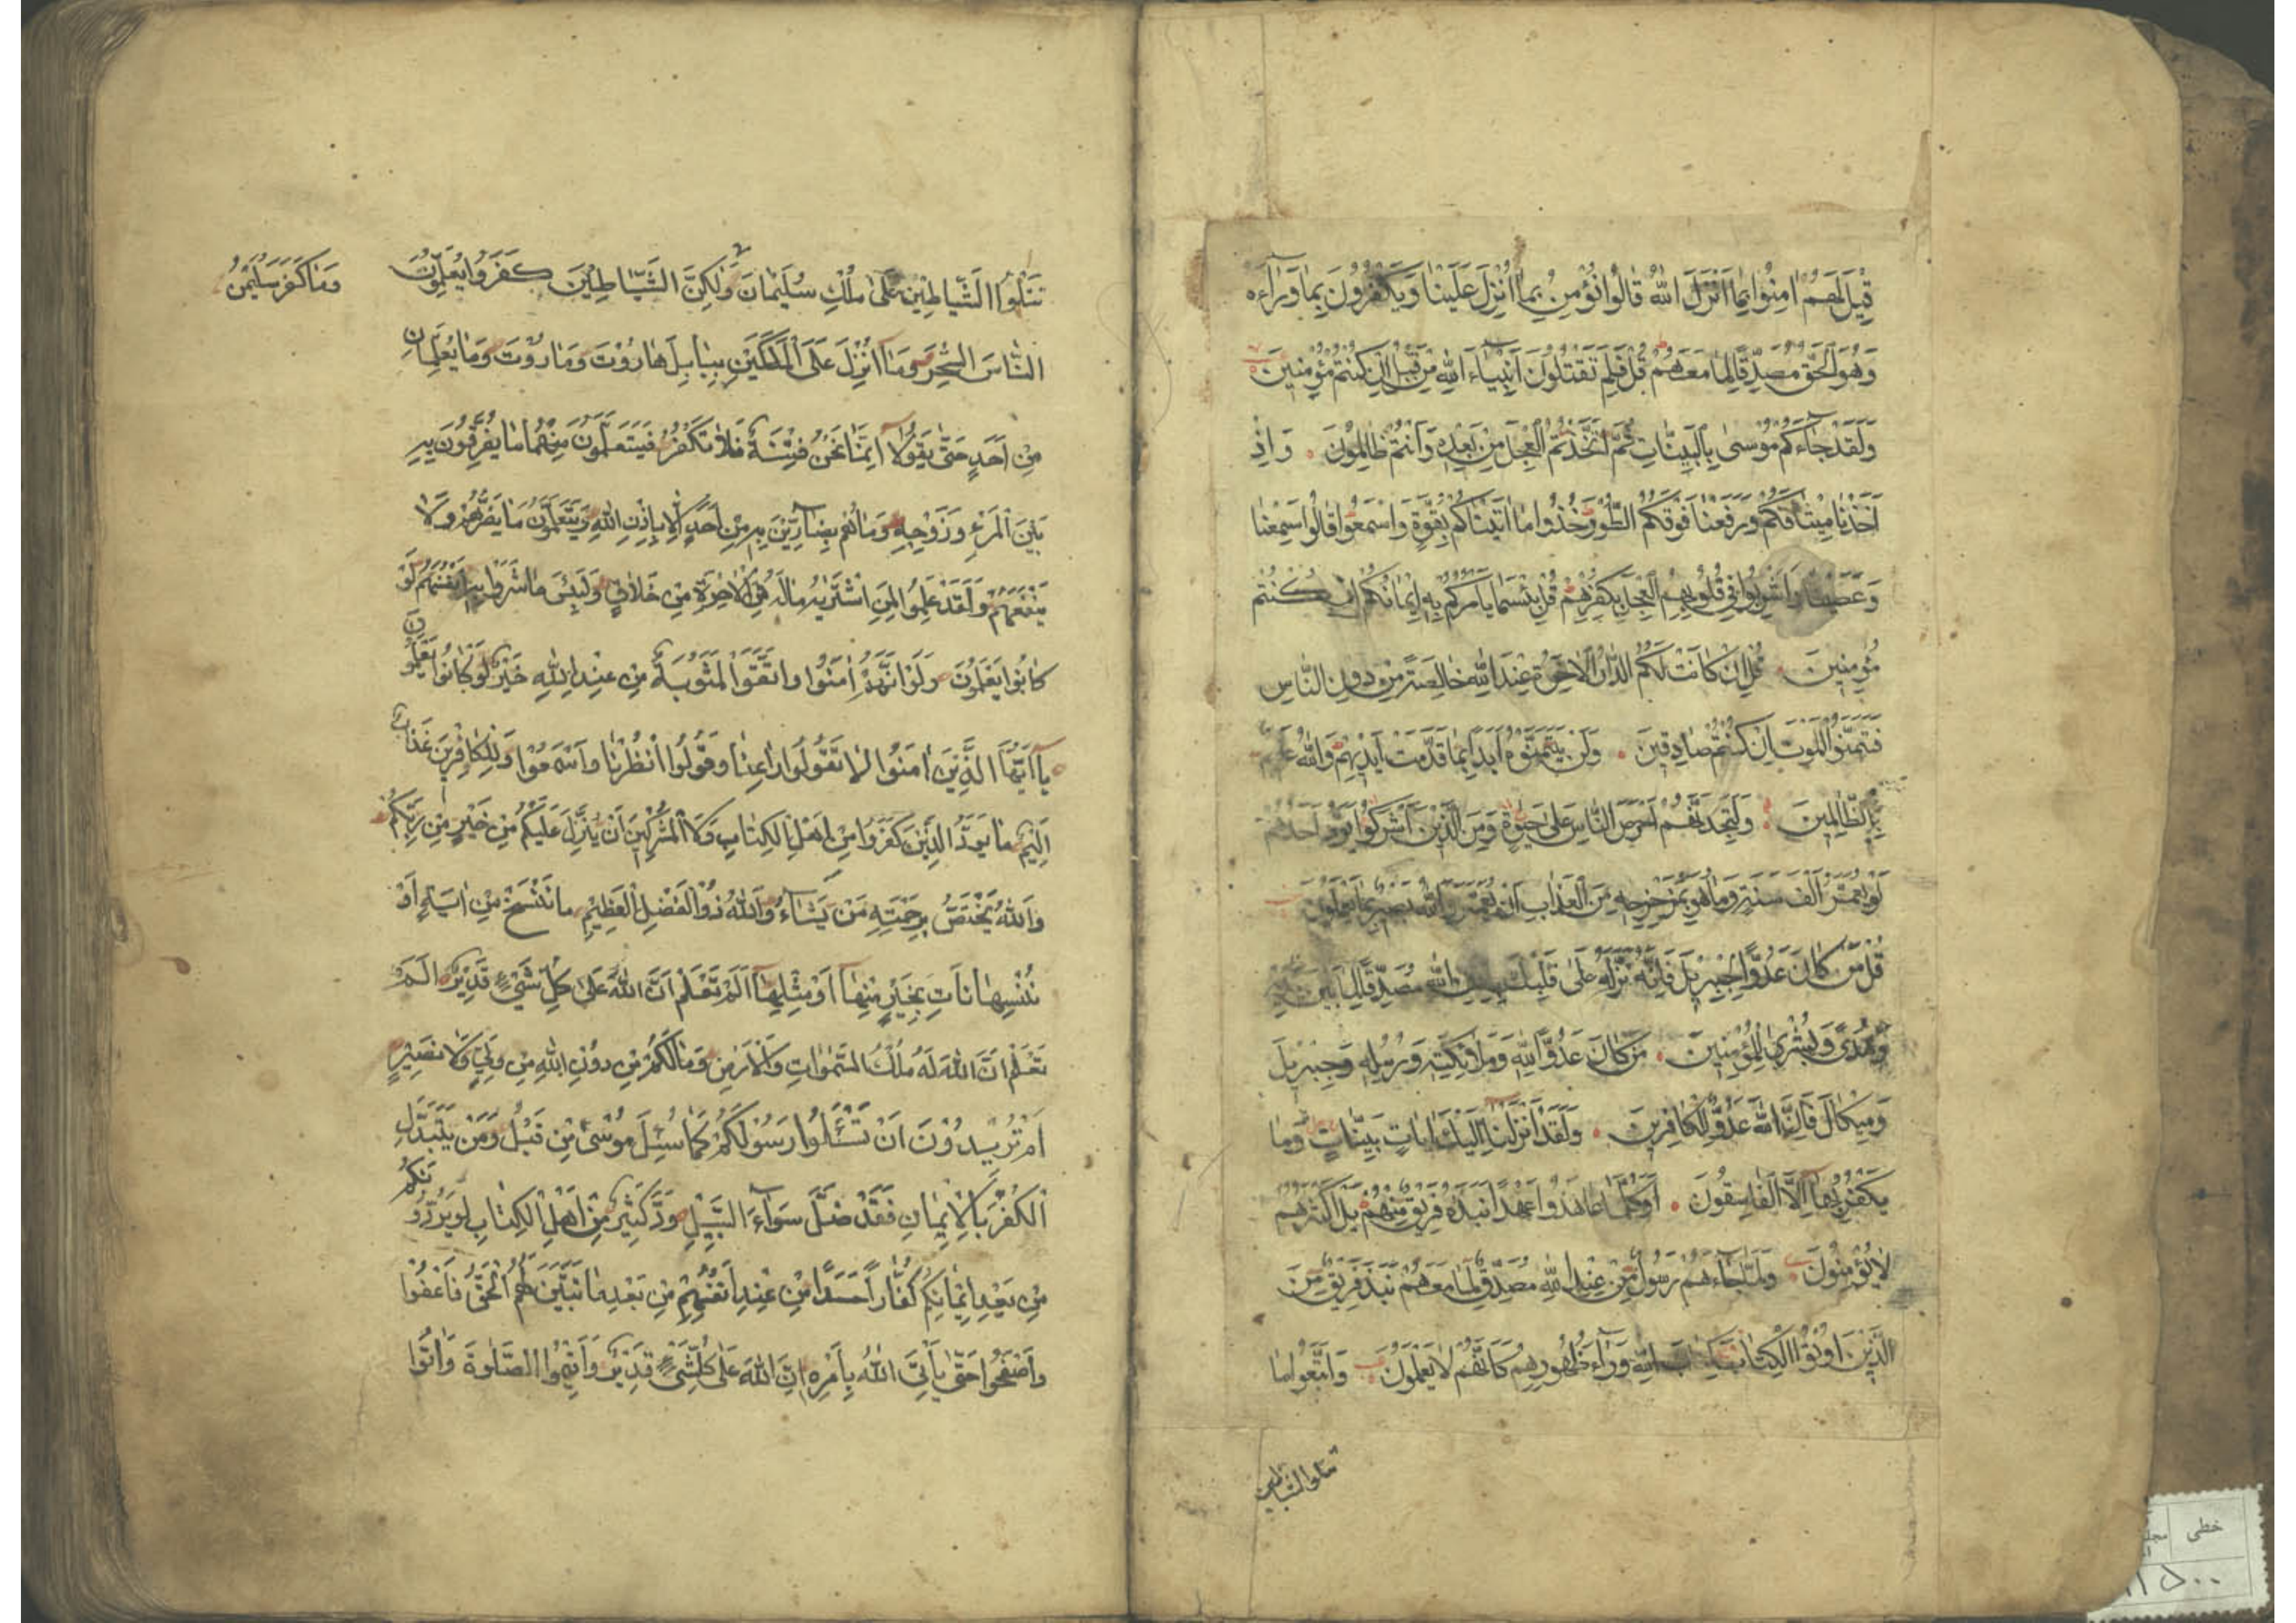 قِيلَ لَهُمْ اٰمِنُوا بِمَا اَنْزَلَ اللهُ قَالُوا نُؤْمِنُ بِمَا اُنْزِلَ عَلَيْنَا وَيَكْفُرُونَ بِمَا وَرَآءَهُ
وَهُوَ الْحَقُّ مُصَدِّقًا لِمَا مَعَهُمْ قُلْ فَلِمَ تَقْتُلُونَ اَنْبِيَاءَ اللهِ مِنْ قَبْلُ اِنْ كُنْتُمْ مُؤْمِنِينَ
وَلَقَدْ جَاءَكُمْ مُوسٰى بِالْبَيِّنَاتِ ثُمَّ اتَّخَذْتُمُ الْعِجْلَ مِنْ بَعْدِهِ وَاَنْتُمْ ظَالِمُونَ وَاِذْ
اَخَذْنَا مِيثَاقَكُمْ وَرَفَعْنَا فَوْقَكُمُ الطُّورَ خُذُوا مَا اٰتَيْنَاكُمْ بِقُوَّةٍ وَاسْمَعُوا قَالُوا سَمِعْنَا
وَعَصَيْنَا وَاُشْرِبُوا فِي قُلُوبِهِمُ الْعِجْلَ بِكُفْرِهِمْ قُلْ بِئْسَمَا يَأْمُرُكُمْ بِهِ اِيمَانُكُمْ اِنْ كُنْتُمْ
مُؤْمِنِينَ قُلْ اِنْ كَانَتْ لَكُمُ الدَّارُ الْاٰخِرَةُ عِنْدَ اللهِ خَالِصَةً مِنْ دُونِ النَّاسِ
فَتَمَنَّوُا الْمَوْتَ اِنْ كُنْتُمْ صَادِقِينَ وَلَنْ يَتَمَنَّوْهُ اَبَدًا بِمَا قَدَّمَتْ اَيْدِيهِمْ وَاللهُ عَلِيمٌ
بِالظَّالِمِينَ وَلَتَجِدَنَّهُمْ اَحْرَصَ النَّاسِ عَلٰى حَيٰوةٍ وَمِنَ الَّذِينَ اَشْرَكُوا يَوَدُّ اَحَدُهُمْ
لَوْ يُعَمَّرُ اَلْفَ سَنَةٍ وَمَا هُوَ بِمُزَحْزِحِهِ مِنَ الْعَذَابِ اَنْ يُعَمَّرَ وَاللهُ بَصِيرٌ بِمَا يَعْمَلُونَ
قُلْ مَنْ كَانَ عَدُوًّا لِجِبْرِيلَ فَاِنَّهُ نَزَّلَهُ عَلٰى قَلْبِكَ بِاِذْنِ اللهِ مُصَدِّقًا لِمَا بَيْنَ يَدَيْهِ
وَهُدًى وَبُشْرٰى لِلْمُؤْمِنِينَ مَنْ كَانَ عَدُوًّا لِلهِ وَمَلٰئِكَتِهِ وَرُسُلِهِ وَجِبْرِيلَ
وَمِيكَالَ فَاِنَّ اللهَ عَدُوٌّ لِلْكَافِرِينَ وَلَقَدْ اَنْزَلْنَا اِلَيْكَ اٰيَاتٍ بَيِّنَاتٍ وَمَا
يَكْفُرُ بِهَا اِلَّا الْفَاسِقُونَ اَوَكُلَّمَا عَاهَدُوا عَهْدًا نَبَذَهُ فَرِيقٌ مِنْهُمْ بَلْ اَكْثَرُهُمْ
لَا يُؤْمِنُونَ وَلَمَّا جَاءَهُمْ رَسُولٌ مِنْ عِنْدِ اللهِ مُصَدِّقٌ لِمَا مَعَهُمْ نَبَذَ فَرِيقٌ مِنَ
الَّذِينَ اُوتُوا الْكِتَابَ كِتَابَ اللهِ وَرَآءَ ظُهُورِهِمْ كَاَنَّهُمْ لَا يَعْلَمُونَ وَاتَّبَعُوا مَا
تتلوا الشياطين
تَتْلُوا الشَّيَاطِيْنُ عَلٰى مُلْكِ سُلَيْمَانَ وَلٰكِنَّ الشَّيَاطِيْنَ كَفَرُوا يُعَلِّمُونَ
وَمَا كَفَرَ سُلَيْمٰنُ
النَّاسَ السِّحْرَ وَمَا اُنْزِلَ عَلَى الْمَلَكَيْنِ بِبَابِلَ هَارُوْتَ وَمَارُوْتَ وَمَا يُعَلِّمَانِ
مِنْ اَحَدٍ حَتّٰى يَقُولَا اِنَّمَا نَحْنُ فِتْنَةٌ فَلَا تَكْفُرْ فَيَتَعَلَّمُونَ مِنْهُمَا مَا يُفَرِّقُونَ بِهِ
بَيْنَ الْمَرْءِ وَزَوْجِهِ وَمَا هُمْ بِضَآرِّيْنَ بِهِ مِنْ اَحَدٍ اِلَّا بِاِذْنِ اللهِ وَيَتَعَلَّمُونَ مَا يَضُرُّهُمْ وَلَا
يَنْفَعُهُمْ وَلَقَدْ عَلِمُوا لَمَنِ اشْتَرٰيهُ مَا لَهُ فِي الْاٰخِرَةِ مِنْ خَلَاقٍ وَلَبِئْسَ مَا شَرَوْا بِهِ اَنْفُسَهُمْ لَوْ
كَانُوا يَعْلَمُونَ وَلَوْ اَنَّهُمْ اٰمَنُوا وَاتَّقَوْا لَمَثُوبَةٌ مِنْ عِنْدِ اللهِ خَيْرٌ لَوْ كَانُوا يَعْلَمُونَ
يَا اَيُّهَا الَّذِيْنَ اٰمَنُوا لَا تَقُولُوا رَاعِنَا وَقُولُوا انْظُرْنَا وَاسْمَعُوا وَلِلْكَافِرِينَ عَذَابٌ
اَلِيْمٌ مَا يَوَدُّ الَّذِيْنَ كَفَرُوا مِنْ اَهْلِ الْكِتَابِ وَلَا الْمُشْرِكِيْنَ اَنْ يُنَزَّلَ عَلَيْكُمْ مِنْ خَيْرٍ مِنْ رَبِّكُمْ
وَاللهُ يَخْتَصُّ بِرَحْمَتِهِ مَنْ يَشَآءُ وَاللهُ ذُو الْفَضْلِ الْعَظِيْمِ مَا نَنْسَخْ مِنْ اٰيَةٍ اَوْ
نُنْسِهَا نَأْتِ بِخَيْرٍ مِنْهَا اَوْ مِثْلِهَا اَلَمْ تَعْلَمْ اَنَّ اللهَ عَلٰى كُلِّ شَيْءٍ قَدِيْرٌ اَلَمْ
تَعْلَمْ اَنَّ اللهَ لَهُ مُلْكُ السَّمٰوَاتِ وَالْاَرْضِ وَمَا لَكُمْ مِنْ دُوْنِ اللهِ مِنْ وَلِيٍّ وَلَا نَصِيْرٍ
اَمْ تُرِيْدُوْنَ اَنْ تَسْئَلُوا رَسُوْلَكُمْ كَمَا سُئِلَ مُوْسٰى مِنْ قَبْلُ وَمَنْ يَتَبَدَّلِ
الْكُفْرَ بِالْاِيْمَانِ فَقَدْ ضَلَّ سَوَآءَ السَّبِيْلِ وَدَّ كَثِيْرٌ مِنْ اَهْلِ الْكِتَابِ لَوْ يَرُدُّوْنَكُمْ
مِنْ بَعْدِ اِيْمَانِكُمْ كُفَّارًا حَسَدًا مِنْ عِنْدِ اَنْفُسِهِمْ مِنْ بَعْدِ مَا تَبَيَّنَ لَهُمُ الْحَقُّ فَاعْفُوْا
وَاصْفَحُوا حَتّٰى يَأْتِيَ اللهُ بِاَمْرِهِ اِنَّ اللهَ عَلٰى كُلِّ شَيْءٍ قَدِيْرٌ وَاَقِيْمُوا الصَّلٰوةَ وَاٰتُوا
خطی